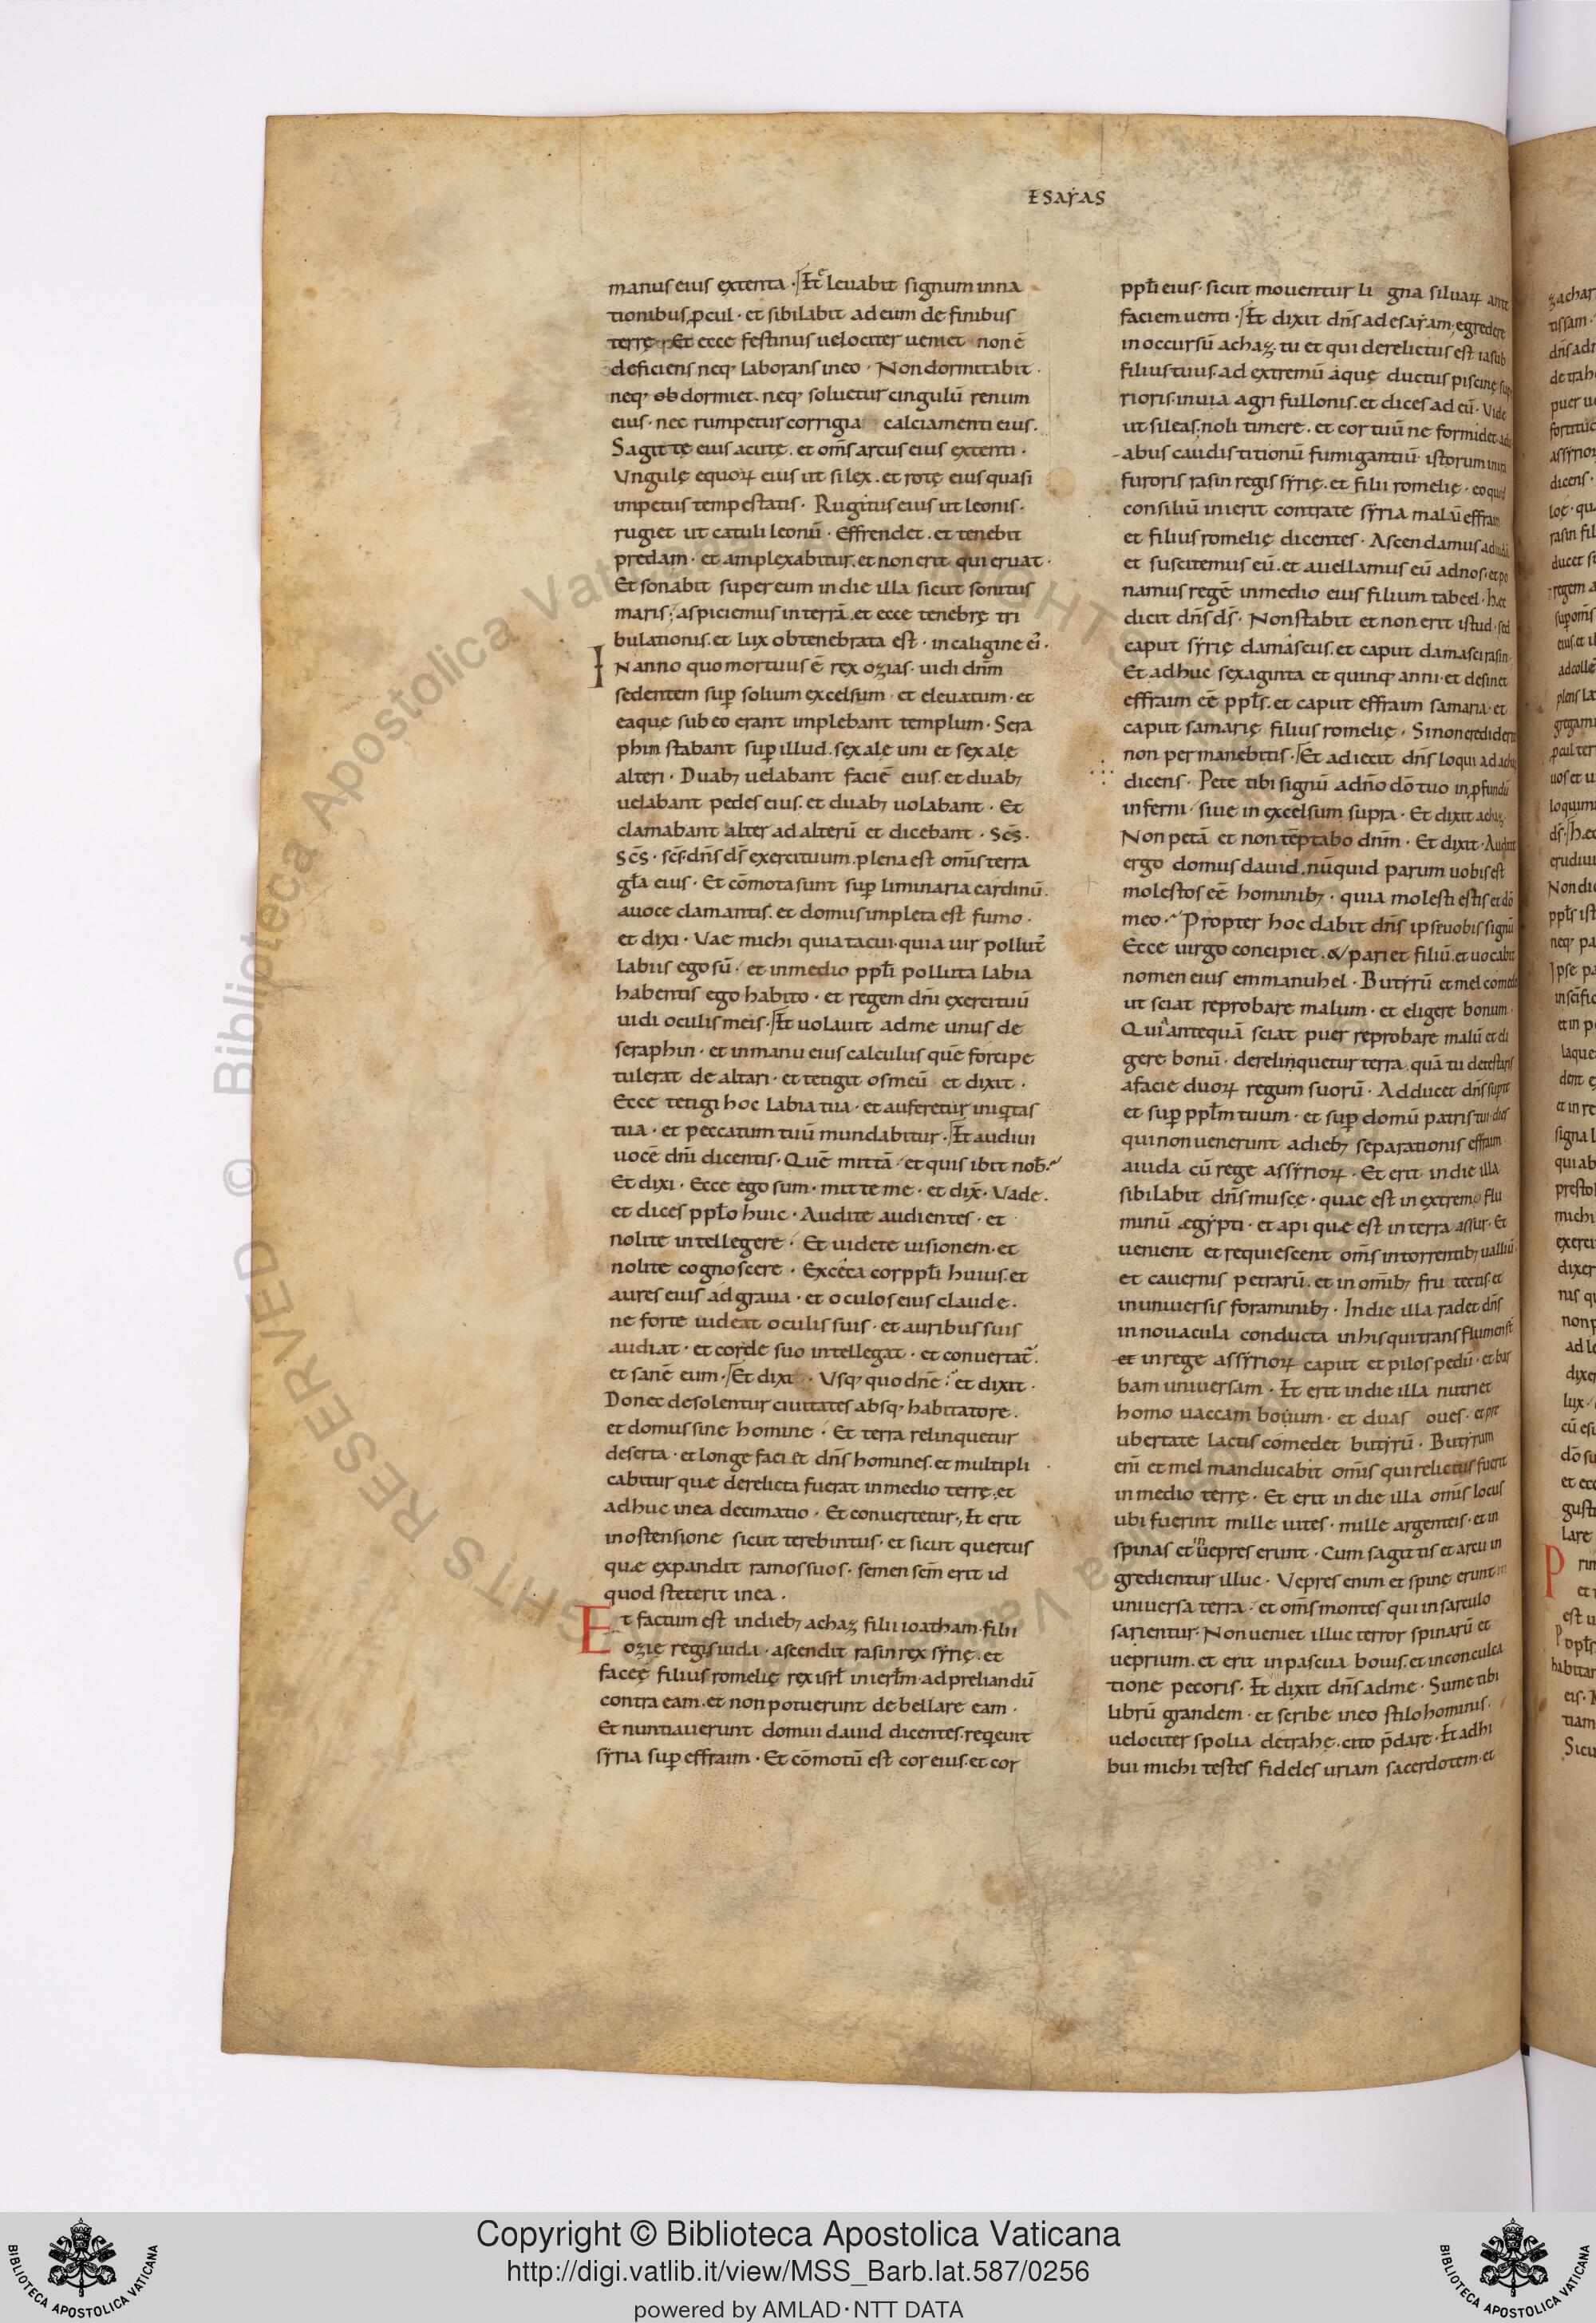 ESAŸAS
manus eius extenta · Et leuabit signum in na
tionibus ꝓcul · et sibilabit ad eum de finibus
terrę · Et ecce festinus uelociter ueniet non ē
deficiens neq; laborans in eo · Non dormitabit ·
neq; obdormiet · neq; soluetur cingulū renum
eius · nec rumpetur corrigia calciamenti eius ·
Sagittę eius acutę · et om̄s arcus eius extenti ·
Vngulę equoꝝ eius ut silex · et rotę eius quasi
impetus tempestatis · Rugitus eius ut leonis ·
rugiet ut catuli leonū · Effrendet · et tenebit
predam · et amplexabitur · et non erit qui eruat ·
Et sonabit super eum in die illa sicut sonitus
maris ; aspiciemus in terrā · et ecce tenebrę tri
bulationis · et lux obtenebrata est · in caligine ei᾽ ·
IN anno quo mortuus ē rex ozias · uidi dnm̄
sedentem suꝑ solium excelsum · et eleuatum · et
eaquę sub eo erant implebant templum · Sera
phin stabant suꝑ illud · sex alę uni et sex alę
alteri · Duab; uelabant faciē eius · et duab;
uelabant pedes eius · et duab; uolabant · Et
clamabant alter ad alterū et dicebant · Sc̄s ·
Sc̄s · sc̄s · dn̄s ds̄ exercituum · plena est om̄is terra
gl̄a eius · Et cōmota sunt suꝑ liminaria cardinū ·
a uoce clamantis · et domus impleta est fumo ·
et dixi · Vae michi quia tacui · quia uir pollut᾽
labiis ego sū · et in medio ppl̄i polluta labia
habentis ego habito · et regem dn̄i exercituū
uidi oculis meis · Et uolauit ad me unus de
seraphin · et in manu eius calculus quē forcipe
tulerat de altari · et tetigit os meū et dixit ·
Ecce tetigi hoc labia tua · et auferetur iniqitas
tua · et peccatum tuū mundabitur · Et audiui
uocē dn̄i dicentis · Quē mittā · et quis ibit nob̄ ·
Et dixi · Ecce ego sum · mitte me · et dix̄ · Vade ·
et dices ppl̄o huic · Audite audientes · et
nolite intellegere · Et uidete uisionem · et
nolite cognoscere · Excęca cor ppl̄i huius · et
aures eius adgraua · et oculos eius claude ·
ne forte uideat oculis suis · et auribus suis
audiat · et corde suo intellegat · et conuertat᾽ ·
et sanē eum · Et dixi · Vsq; quo dn̄e · et dixit ·
Donec desolentur ciuitates absq; habitatore ·
et domus sine homine · Et terra relinquetur
deserta · et longe faciet dn̄s homines · et multipli
cabitur quæ derelicta fuerat in medio terrę · et
adhuc in ea decimatio · Et conuertetur · Et erit
in ostensione sicut terebintus · et sicut quercus
quæ expandit ramos suos · semen scm̄ erit id
quod steterit in ea ·
Et factum est in dieb; achaz filii ioatham · filii
ozię regis iuda · ascendit rasin rex sẏrię · et
faceę filius romelię rex isrl̄ in ierl̄m · ad preliandū
contra eam · et non potuerunt debellare eam ·
Et nuntiauerunt domui dauid dicentes · reqeuit
sẏria suꝑ effraim · Et cōmotū est cor eius · et cor
ppl̄i eius · sicut mouentur ligna siluaꝝ ante
faciem uenti · Et dixit dn̄s ad esaẏam · egredere
in occursū achaz · tu et qui derelictus est iasub
filius tuus · ad extremū aquę ductus piscinę sup
rioris · in uia agri fullonis · et dices ad eū · Vide
ut sileas · noli timere · et cor tuū ne formidet · adu
abus caudis titionū fumigantiū · istorum in ira
furoris rasin regis sẏrię · et filii romelię · eo quod
consiliū inierit contra te sẏria malū effraim
et filius romelię dicentes · Ascendamus ad iudā
et suscitemus eū · et auellamus eū ad nos · et po
namus regē in medio eius filium tabeel · hæc
dicit dn̄s ds̄ · Non stabit et non erit istud · sed
caput sẏrię damascus · et caput damasci rasin
Et adhuc sexaginta et quinq; anni · et desinet
effraim eē ppl̄s · et caput effraim samaria · et
caput samarię filius romelię · Si non credideritis
non permanebitis · Et adiecit dn̄s loqui ad achaz
dicens · Pete tibi signū a dn̄o dō tuo in ꝓfundū
inferni · siue in excelsum supra · Et dixit achaz
Non petā et non tēptabo dnm̄ · Et dixit · Audite
ergo domus dauid · nūquid parum uobis est
molestos eē hominib; · quia molesti estis et dō
meo · Propter hoc dabit dn̄s ipse uobis signū
Ecce uirgo concipiet · & pariet filiū · et uocabit
nomen eius emmanuhel · Butẏrū et mel comedet
ut sciat reprobare malum · et eligere bonum ·
Quia antequā sciat puer reprobare malū et eli
gere bonū · derelinquetur terra · quā tu detestaris
a facie duoꝝ regum suorū · Adducet dn̄s sup te
et suꝑ ppl̄m tuum · et suꝑ domū patris tui · dies
qui non uenerunt a dieb; separationis effraim
a iuda cū rege assẏrioꝝ · Et erit in die illa
sibilabit dn̄s muscę · quae est in extremo flu
minū ægẏpti · et api quæ est in terra assur · Et
uenient et requiescent om̄s in torrentib; ualliū
et cauernis petrarū · et in om̄ib; frutectis · et
in uniuersis foraminib; · In die illa radet dn̄s
in nouacula conducta in his qui trans flumen st̄
et in rege assẏrioꝝ caput et pilos pedū · et bar
bam uniuersam · Et erit in die illa nutriet
homo uaccam bouum · et duas oues · et pre
ubertate lactis comedet butẏrū · Butẏrum
eni᾽ et mel manducabit om̄is qui relictus fuerit
in medio terrę · Et erit in die illa om̄is locus
ubi fuerint mille uites · mille argenteis · et in
spinas et in uepres erunt · Cum sagittis et arcu in
gredientur illuc · Vepres enim et spinę erunt in
uniuersa terra · et om̄s montes qui in sarculo
sarientur · Non ueniet illuc terror spinarū et
ueprium · et erit in pascua bouis · et in conculca
tione pecoris · Et dixit dn̄s ad me · Sume tibi
librū grandem · et scribe in eo stilo hominis ·
uelociter spolia detrahe · cito p̄dare · Et adhi
bui michi testes fideles uriam sacerdotem · et
Copyright © Biblioteca Apostolica Vaticana
http://digi.vatlib.it/view/MSS_Barb.lat.587/0256
powered by AMLAD·NTT DATA
BIBLIOTECA APOSTOLICA VATICANA
BIBLIOTECA APOSTOLICA VATICANA